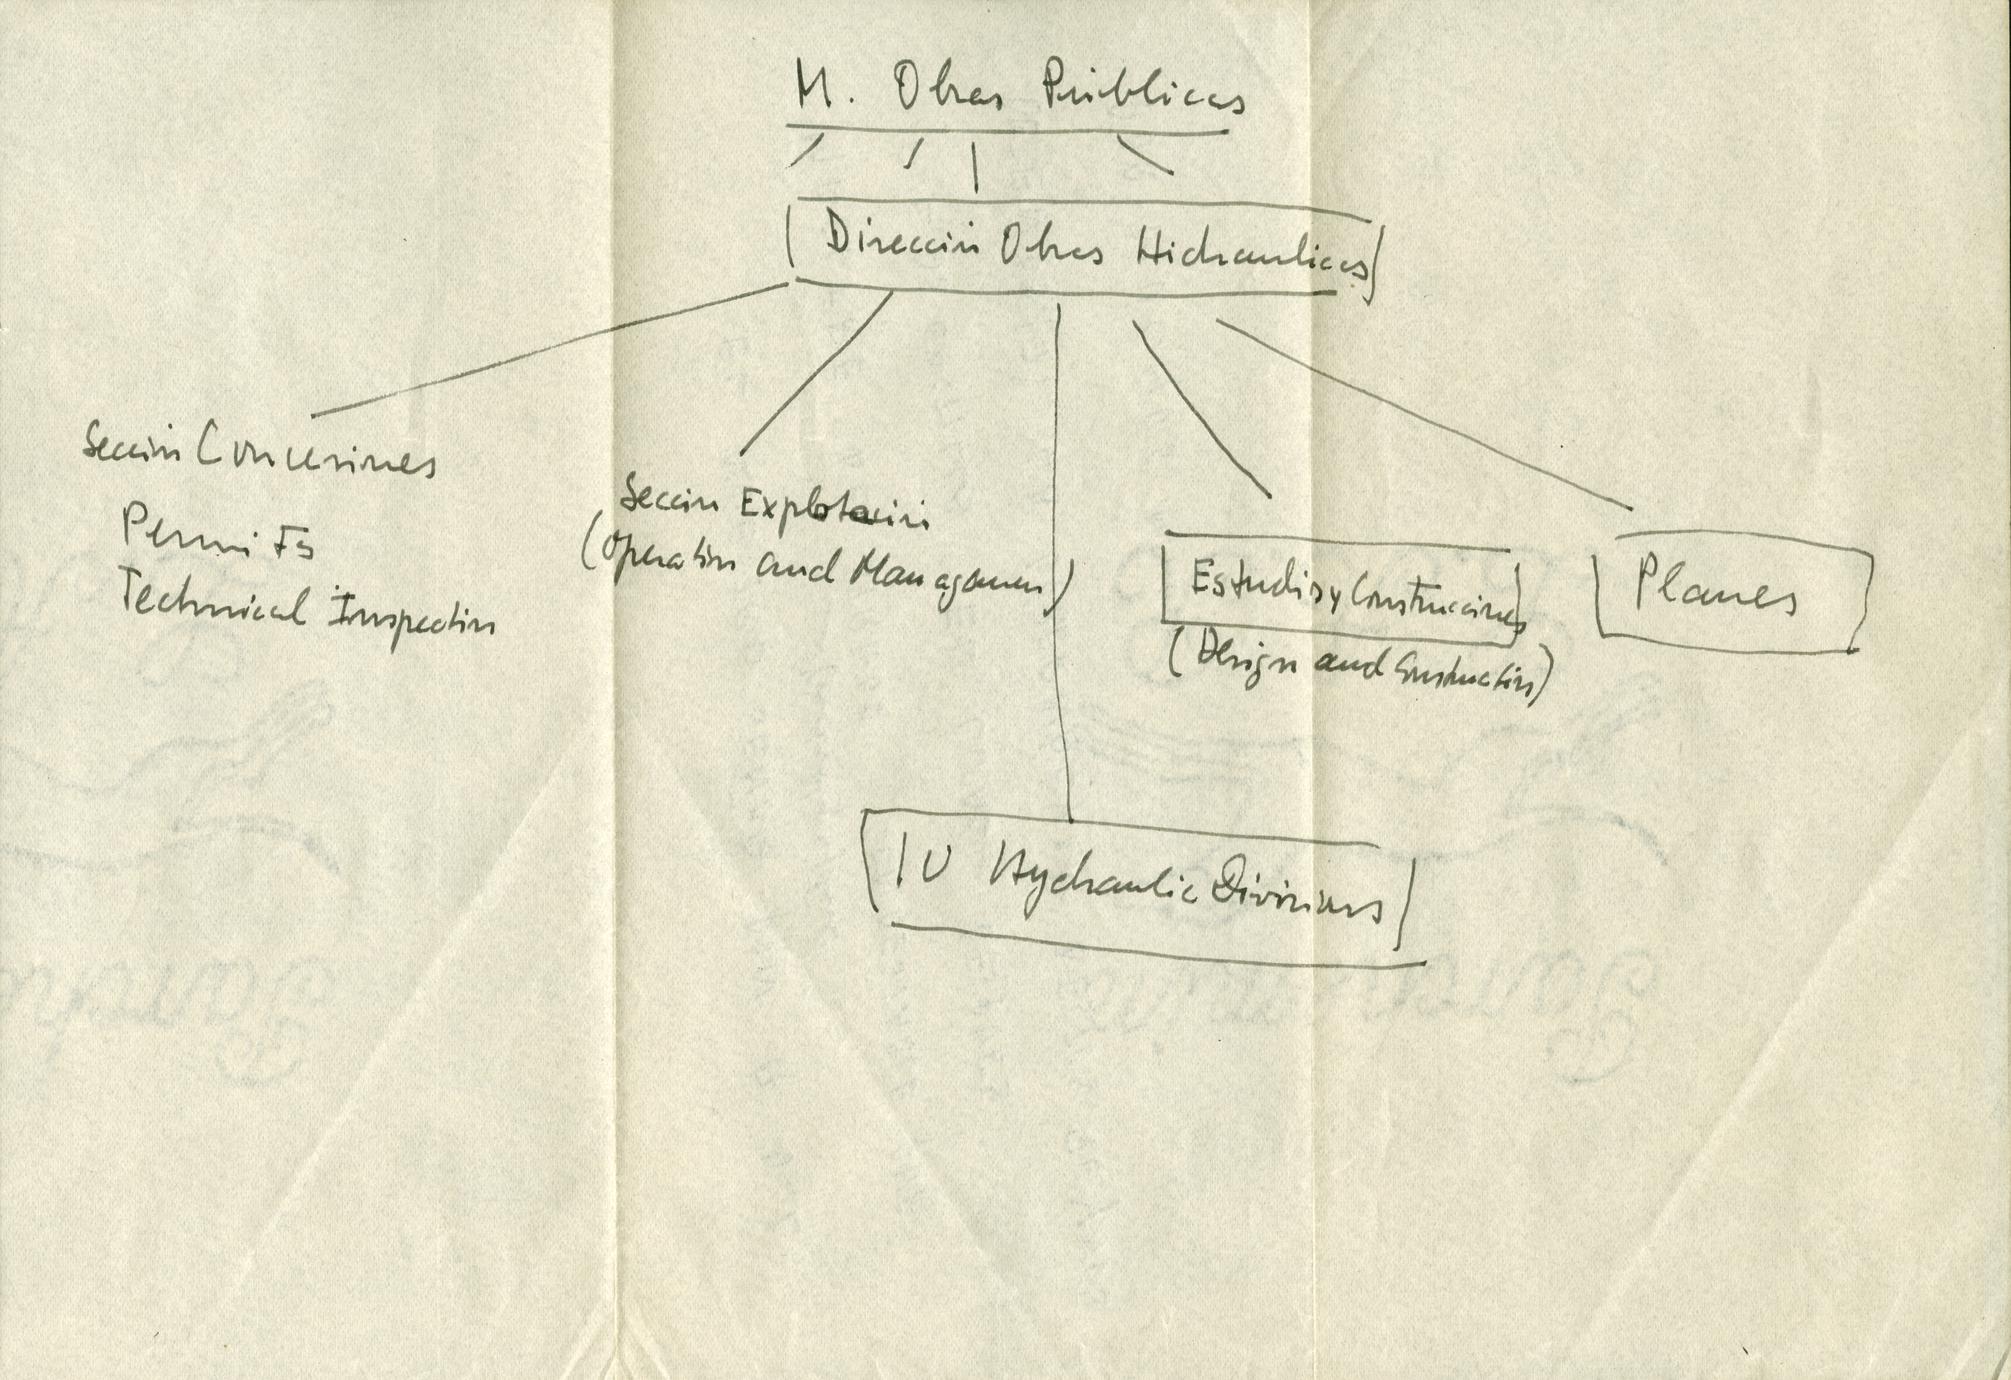 M. Obras Públicas
Dirección Obras Hidraulicas
Sección Concesiones
Permits
Technical Inspection
Sección Explotación
(Operation and Managemen)
Estudios y Construcciones
(Design and Construction)
Planes
IV Hydraulic Divisions